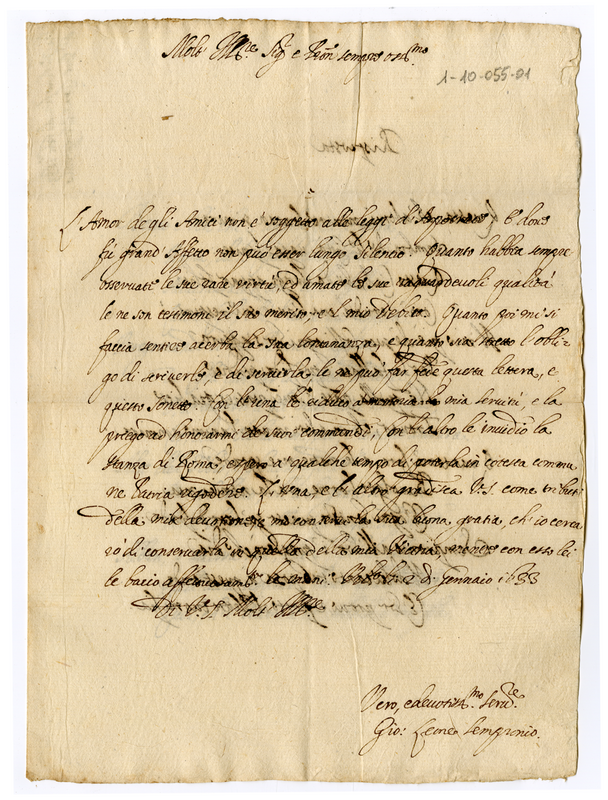 Molt' Ill.re Sig. e Pron sempre oss.mo
1-10-055-01
Risposta
L'Amor degli Amici non è soggetto alle leggi d' e doue
fù grand' Affetto non può esser lungo silencio. Quanto habbia sempre
osseruate le sue rare virtù, ed amate le sue riguardeuoli qualità
le ne son testimone il suo merito, e 'l mio debito. Quanto poi mi si
faccia sentire acerba la sua lontananza, e quanto sia stretto l'obli-
go di scriuerle, e di seruirla, le ne può far fede questa lettera, e
questo sonetto. Con l'una le riduco a memoria la mia seruitù, e la
priego ad honorarmi de' suoi commandi, con l'altro le inuidio la
stanza di Roma, e spero a qualche tempo di poterla in cotesta commu
ne Patria rigodere. L'una, e l'altro gradisca V.S. come tributi
della mia deuotione, e mi conserui la sua buona gratia, ch'io cerca
rò di conseruarla in quella della mia mentre con esso lei
le bacio affettuosam.te le mani. li 2 di Gennaio 1633
Di V.S. Molt' Ill.re
Vero, e deuotiss.mo Seru.re
Gio: Leone Sempronio.